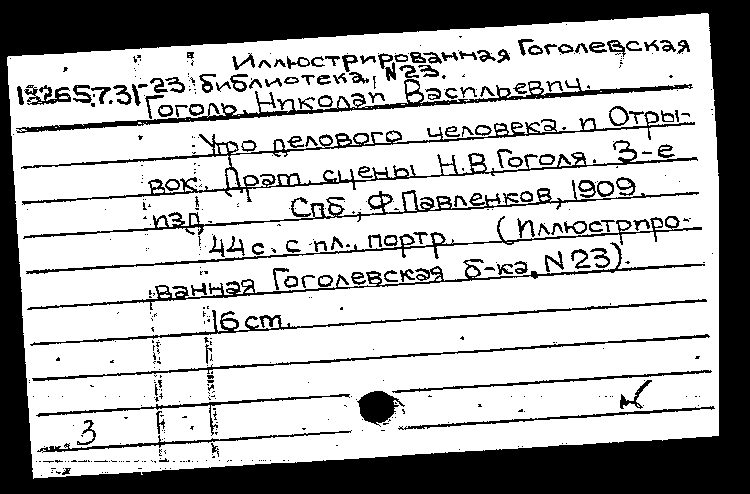 Иллюстрированная Гоголевская
182657.31-23 библиотека, N23.
Гоголь. Николай Васильевич.
Утро делового человека. и Отры-
вок. Драт. сцены Н.В.Гоголя. 3-е
изд. Спб., Ф.Павленков, 1909.
44 с. с ил., портр. (Иллюстриро-
ванная Гоголевская б-ка. N23).
16 cm.
3